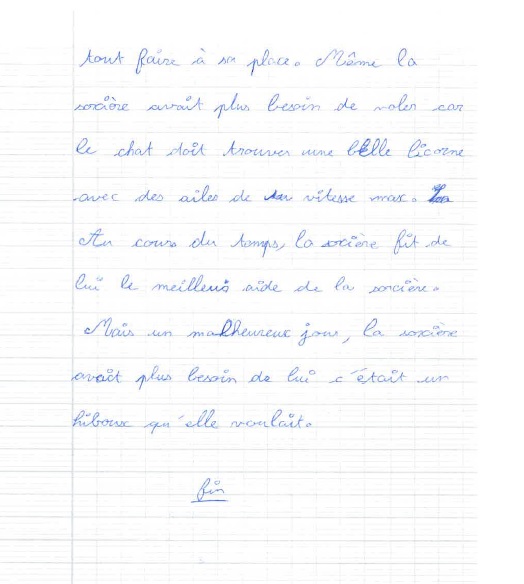 tout faire à sa place. Même la
sorcière avait plus besoin de voler car
le chat doit trouver une belle licorne
avec des ailes de vitesse max.
Au cours du temps, la socière fit de
lui le meilleus aide de la sorcière.
Mais un malheureux jour, la sorcière
avait plus besoin de lui c'était un
hiboux qu'elle voulait.
fin